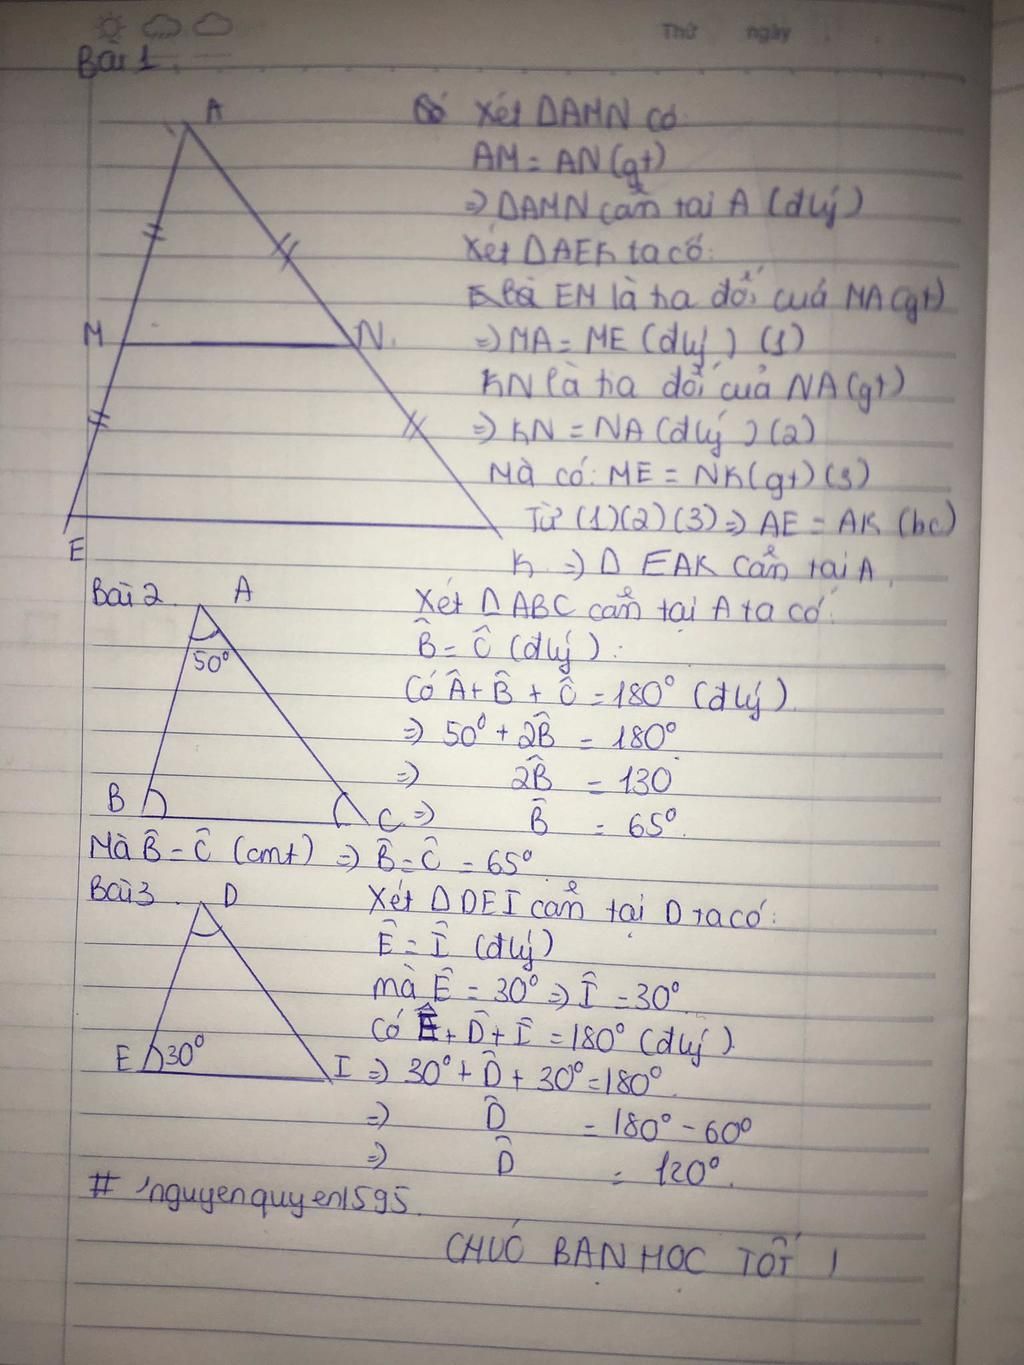 Thứ ngày
Bài 1
A
Có Xét ΔAMN có
AM = AN (gt)
=> ΔAMN cân tại A (đlý)
Xét ΔAEK ta có:
EM là tia đối của MA (gt)
M
N
=> MA = ME (đlý) (1)
KN là tia đối của NA (gt)
=> KN = NA (đlý) (2)
Mà có: ME = NK (gt) (3)
Từ (1) (2) (3) => AE = AK (bc)
E
K => Δ EAK cân tại A
Bài 2 A
Xét ΔABC cân tại A ta có:
50°
B̂ = Ĉ (đlý).
Có Â + B̂ + Ĉ = 180° (đlý).
=> 50° + 2B̂ = 180°
=> 2B̂ = 130
B
C => B̂ = 65°.
Mà B̂ = Ĉ (cmt) => B̂ = Ĉ = 65°
Bài 3 D
Xét ΔDEI cân tại D ta có:
Ê = Î (đlý)
mà Ê = 30° => Î = 30°
Có Ê + D̂ + Î = 180° (đlý)
E 30°
I => 30° + D̂ + 30° = 180°.
=> D̂ = 180° - 60°
=> D̂ = 120°.
# nguyenquyen1595.
CHÚC BẠN HỌC TỐT !